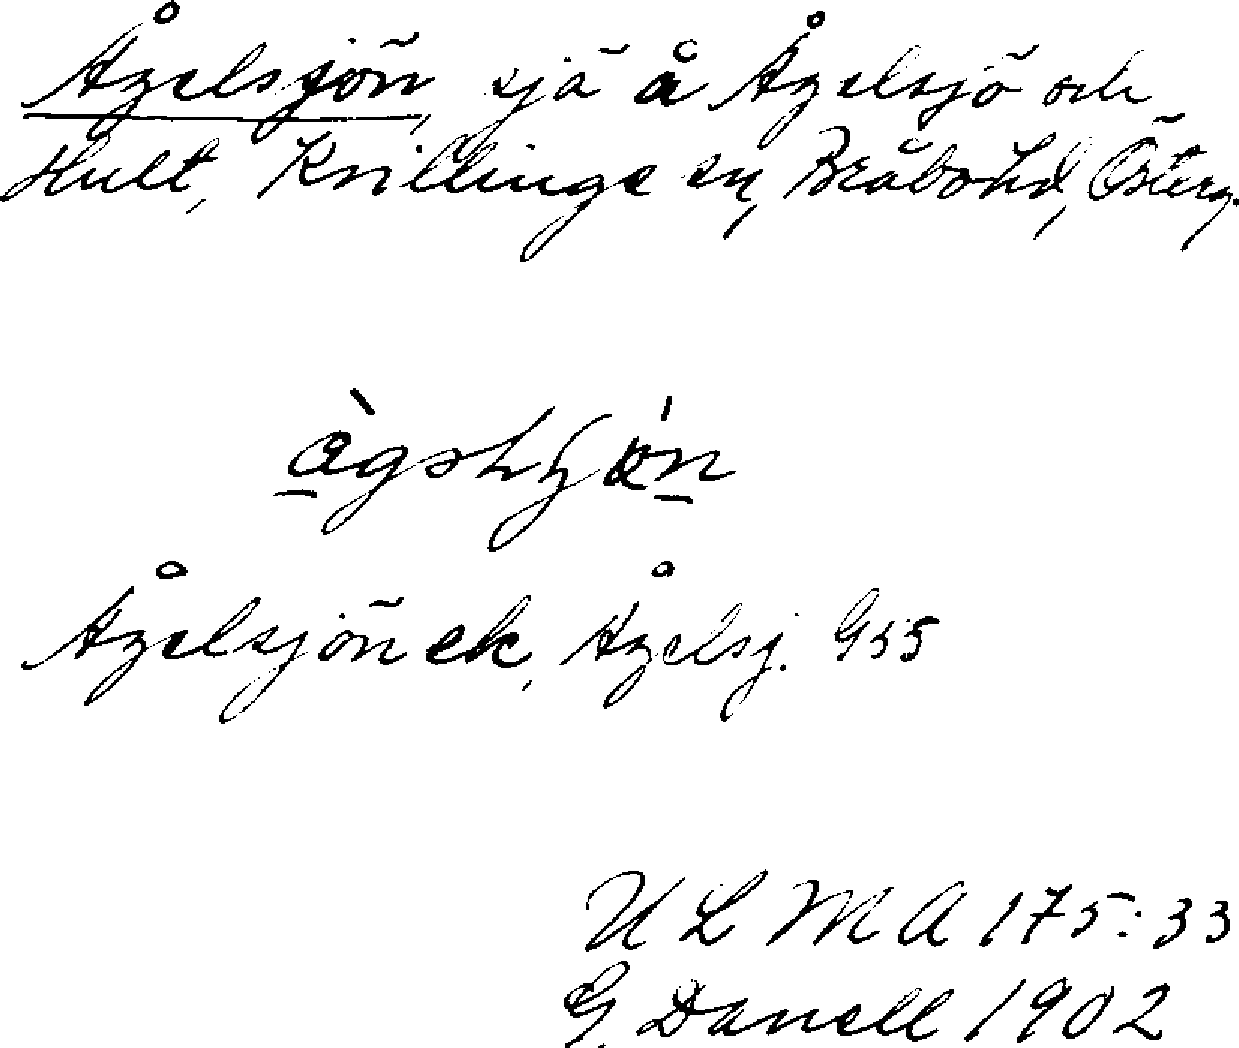 Ågelsjön, sjö å Ågelsjö och
Hult, Kvillinge sn, Bråbo hd, Österg.
Ågelsjön ek, Ågelsj. G55
ULMA 175:33
G. Danell 1902